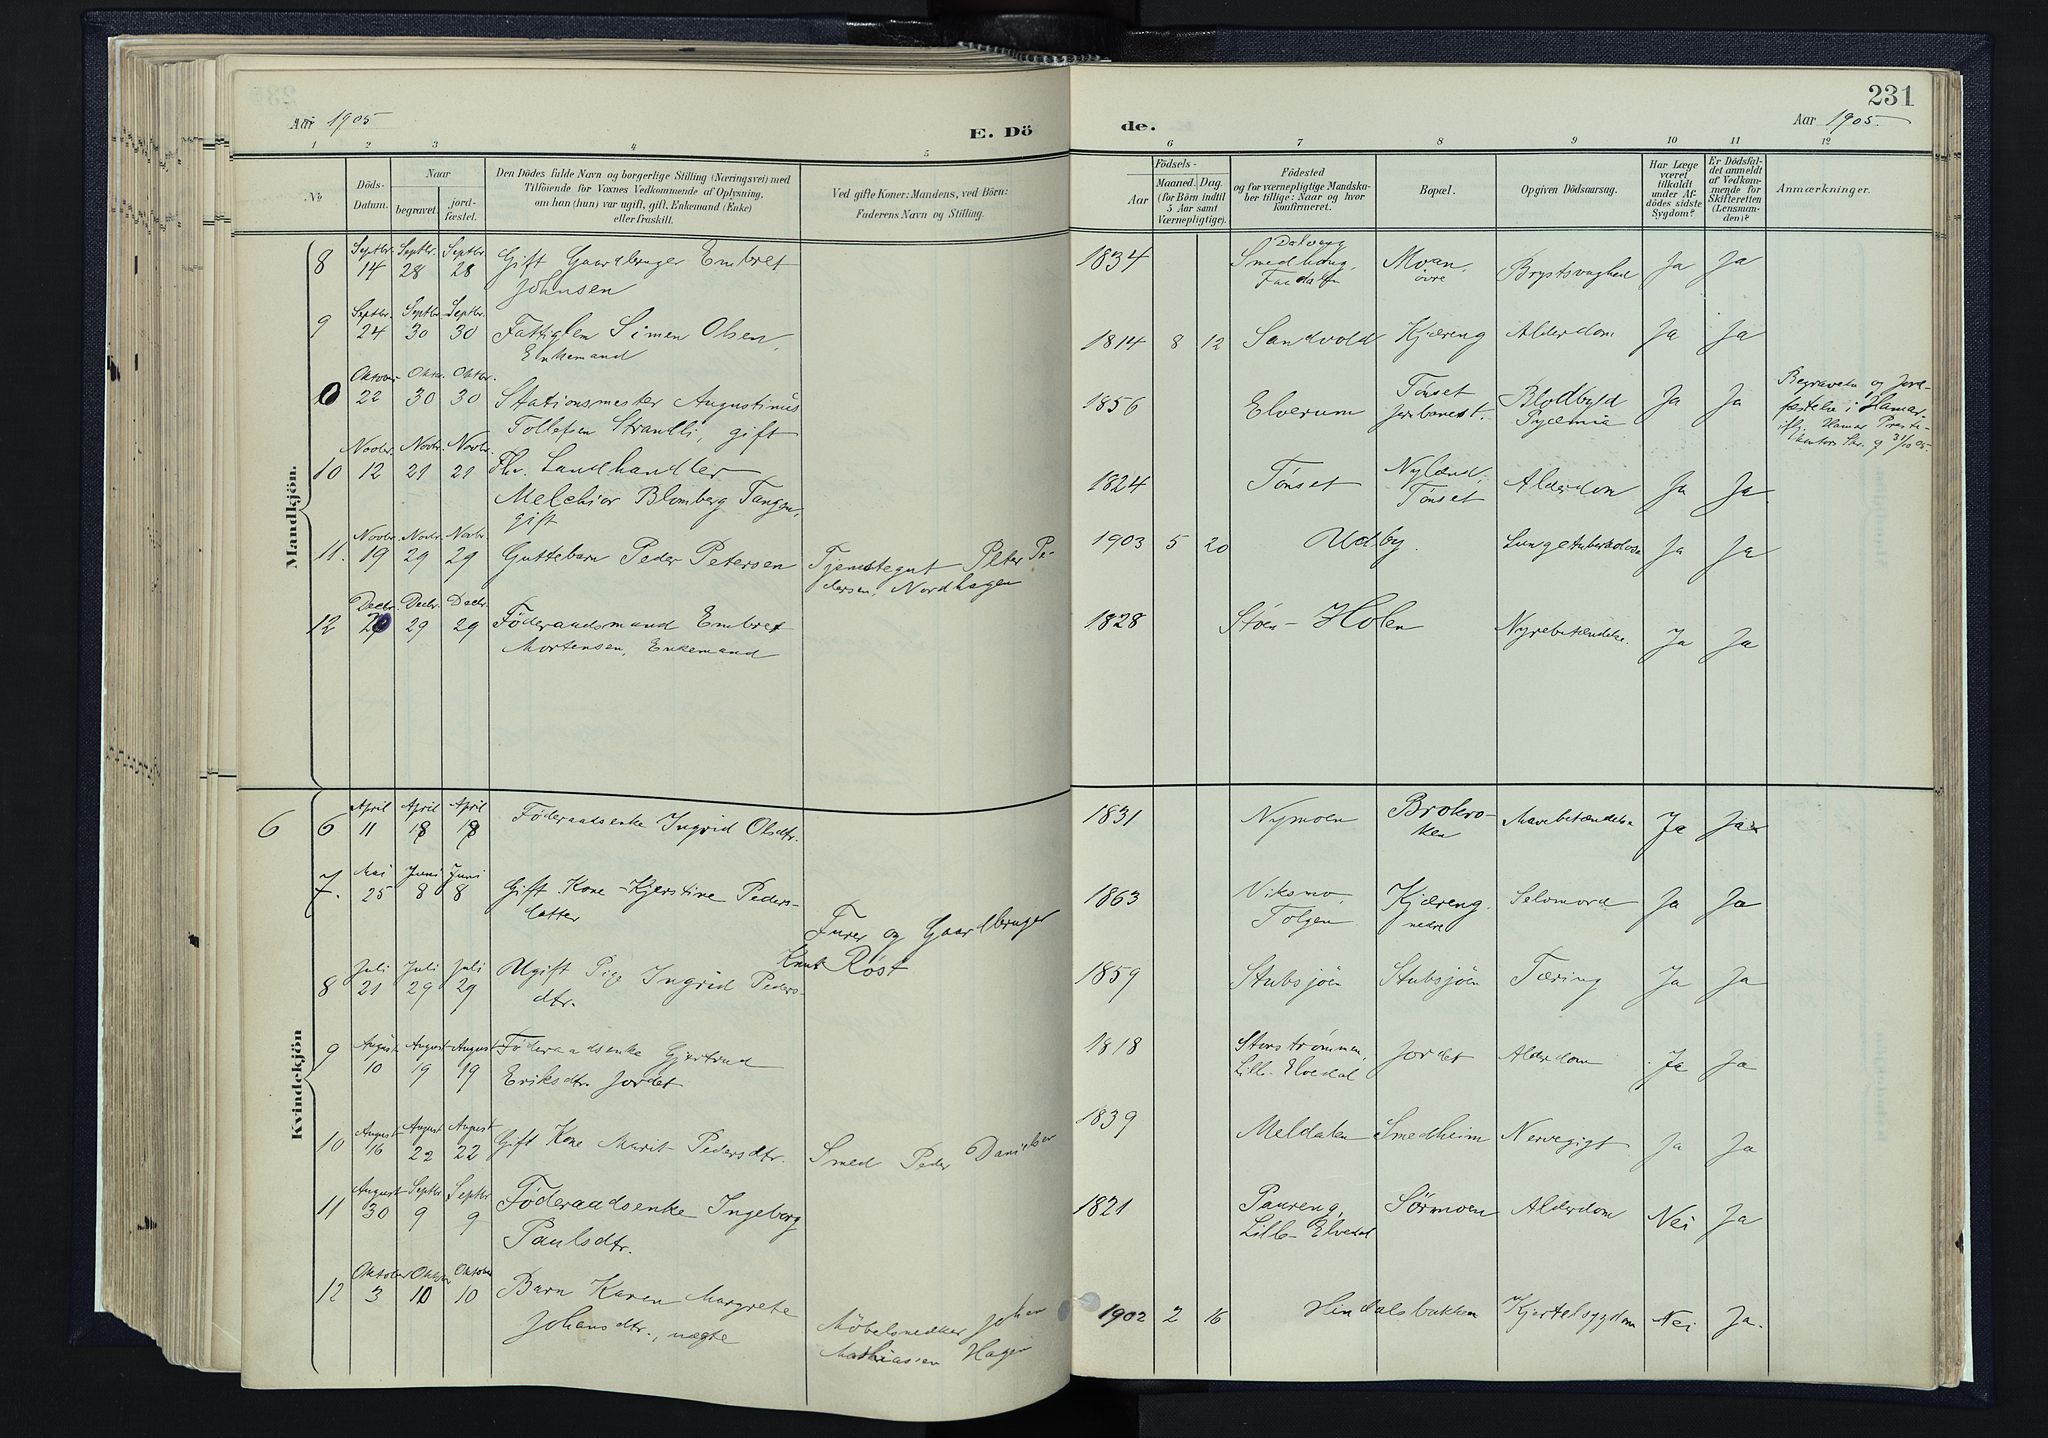 231
Aar 1905
E. Dö
de.
Aar 1905.
1 2 3 4 5 6 7 8 9 10 11 12
No
Döds-
Datum.
Naar
begravet.
jord-
fæstet.
Den Dödes fulde Navn og borgerlige Stilling (Næringsvei) med
Tilföiende for Voxnes Vedkommende af Oplysning,
om han (hun) var ugift, gift, Enkemand (Enke)
eller fraskilt.
Ved gifte Koner: Mandens, ved Börn:
Faderens Navn og Stilling.
Födsels-
Aar
Maaned.
Dag.
(for Börn indtil
5 Aar samt
Værnepligtige).
Födested
og for værnepligtige Mandska-
ber tillige: Naar og hvor
konfirmeret.
Bopæl.
Opgiven Dödsaarsag.
Har Læge
været
tilkaldt
under Af-
dödes sidste
Sygdom?
Er Dödsfal-
det anmeldt
af Vedkom-
mende for
Skifteretten
(Lensman-
den)?
Anmærkninger.
Mandkjön.
8 Septbr. 14 Septbr. 28 Septbr. 28 Gift Gaardbruger Embret
Johnsen
1834 Smedhaug, Moan, øvre Brystsvaghed Ja Ja
9 Septbr. 24 Septbr. 30 Septbr. 30 Fattiglem Simen Olsen,
Enkemand
1814 8 12 Sandvold Kjæreng Alderdom Ja Ja
Oktober 22 Oktbr. 30 Oktbr. 30 Stationsmester Augustinus
Tollefsen Strandli, gift
1856 Elverum Tønset Jernbanest. Blodbyld Pyæmia Ja Ja
Begravelse og Jord-
fæstelse i Hamar
10 Novbr. 12 Novbr. 21 Novbr. 21 Fhv. Landhandler
Melchior Blomberg Tangen,
gift
1824 Tønset Nyland, Tønset Alderdom Ja Ja
11. Novbr. 19 Novbr. 29 Novbr. 29 Guttebarn Peder Petersen Tjenestegut Peter Pe-
dersen, Nordhagen
1903 5 20 Udby. Lungetuberkulose Ja Ja
12 Decbr. Decbr. 29 Decbr. 29 Føderaadsmand Embret
Mortensen, Enkemand
1828 Støen-Holen Nyrebetændelse. Ja Ja
Kvindekjön
6 6 April 11 April 18 April 18 Føderaadsenke Ingrid Olsdtr.
1831 Nymoen Brokro-
ken Mavebetændelse Ja Ja
7. Mai 25 Juni 8 Juni 8 Gift Kone Kjerstine Peders-
datter
Furer og Gaardbruger
Knut Røst
1863 Viksmo, Tolgen Kjæreng, nedre Selvmord Ja Ja
8 Juli 21 Juli 29 Juli 29 Ugift Pige Ingrid Peders-
dtr.
1859 Stubsjøen Stubsjøen Tæring Ja Ja
9 August 10 August 19 August 19 Føderaadsenke Gjertrud
Eriksdtr. Jordet
1818 Storstrømmen, Lille-Elvedal Jordet Alderdom Ja Ja
10 August 16 August 22 August 22 Gift Kone Marit Pedersdtr. Smed Peder Danielsen
1839 Meldalen Smedheim Nervegigt Ja Ja
11 August 30 Septbr. 9 Septbr. 9 Føderaadsenke Ingeborg
Paulsdtr.
1821 Paureng, Lille-Elvedal Sørmoen Alderdom Nei Ja
12 Oktober 3 Oktober 10 Oktober 10 Barn Karen Margrete
Johansdtr., uægte
Møbelsnedker Johan
Mathiassen Hagen
1902 2 16 Hindalsbakken Kjertelsygdom Nei Ja.